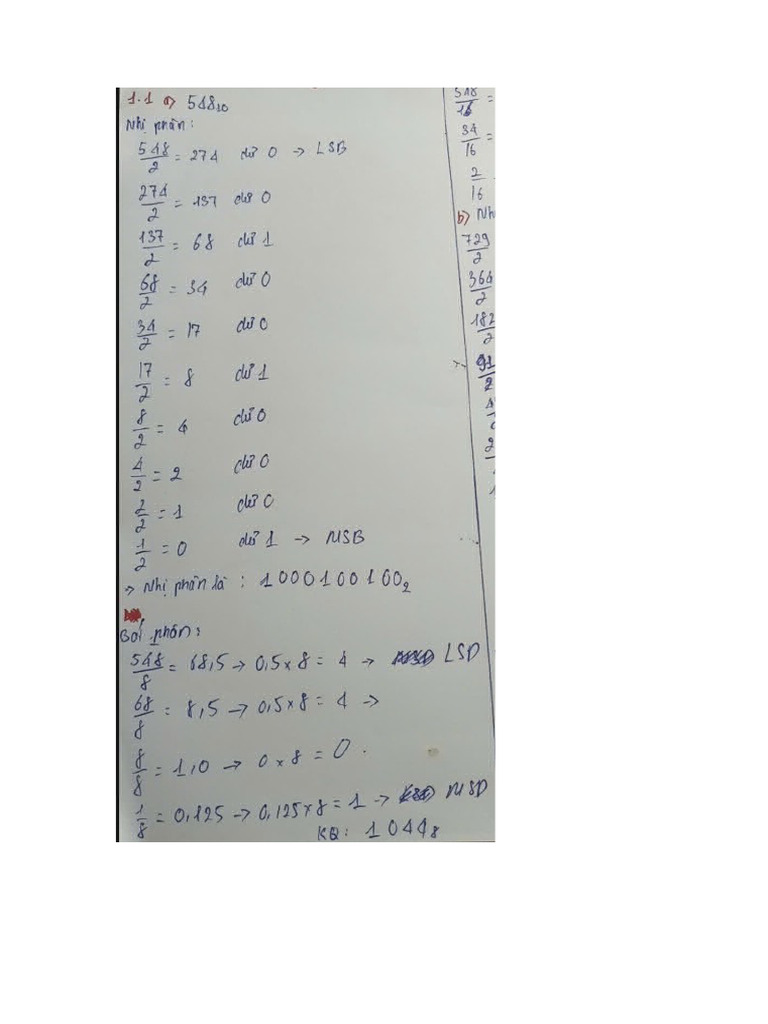 1.1 a) 548₁₀
Nhị phân:
548/2 = 274 dư 0 → LSB
274/2 = 137 dư 0
137/2 = 68 dư 1
68/2 = 34 dư 0
34/2 = 17 dư 0
17/2 = 8 dư 1
8/2 = 4 dư 0
4/2 = 2 dư 0
2/2 = 1 dư 0
1/2 = 0 dư 1 → MSB
→ Nhị phân là : 1000100100₂
Bát phân:
548/8 = 68,5 → 0,5 x 8 = 4 → LSD
68/8 = 8,5 → 0,5 x 8 = 4 →
8/8 = 1,0 → 0 x 8 = 0.
1/8 = 0,125 → 0,125 x 8 = 1 → MSD
KQ: 1044₈
548/16 =
34/16 =
2/16
b) Nh
729/2
364/2
182/2
91/2